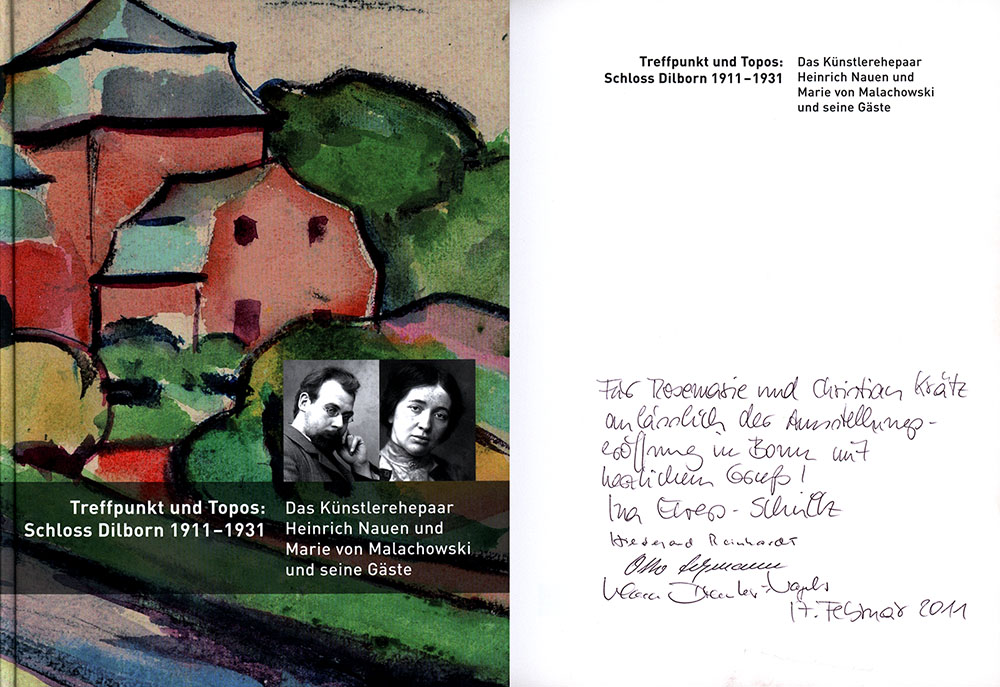 Treffpunkt und Topos:
Schloss Dilborn 1911–1931
Das Künstlerehepaar
Heinrich Nauen und
Marie von Malachowski
und seine Gäste
Treffpunkt und Topos:
Schloss Dilborn 1911–1931
Das Künstlerehepaar
Heinrich Nauen und
Marie von Malachowski
und seine Gäste
Für Rosemarie und Christian Krätz
anlässlich der Ausstellungs-
eröffnung in Bonn mit
herzlichem Gruß!
Ina Ewers-Schultz
Hildegard Reinhardt
Otto
Klara
17. Februar 2011